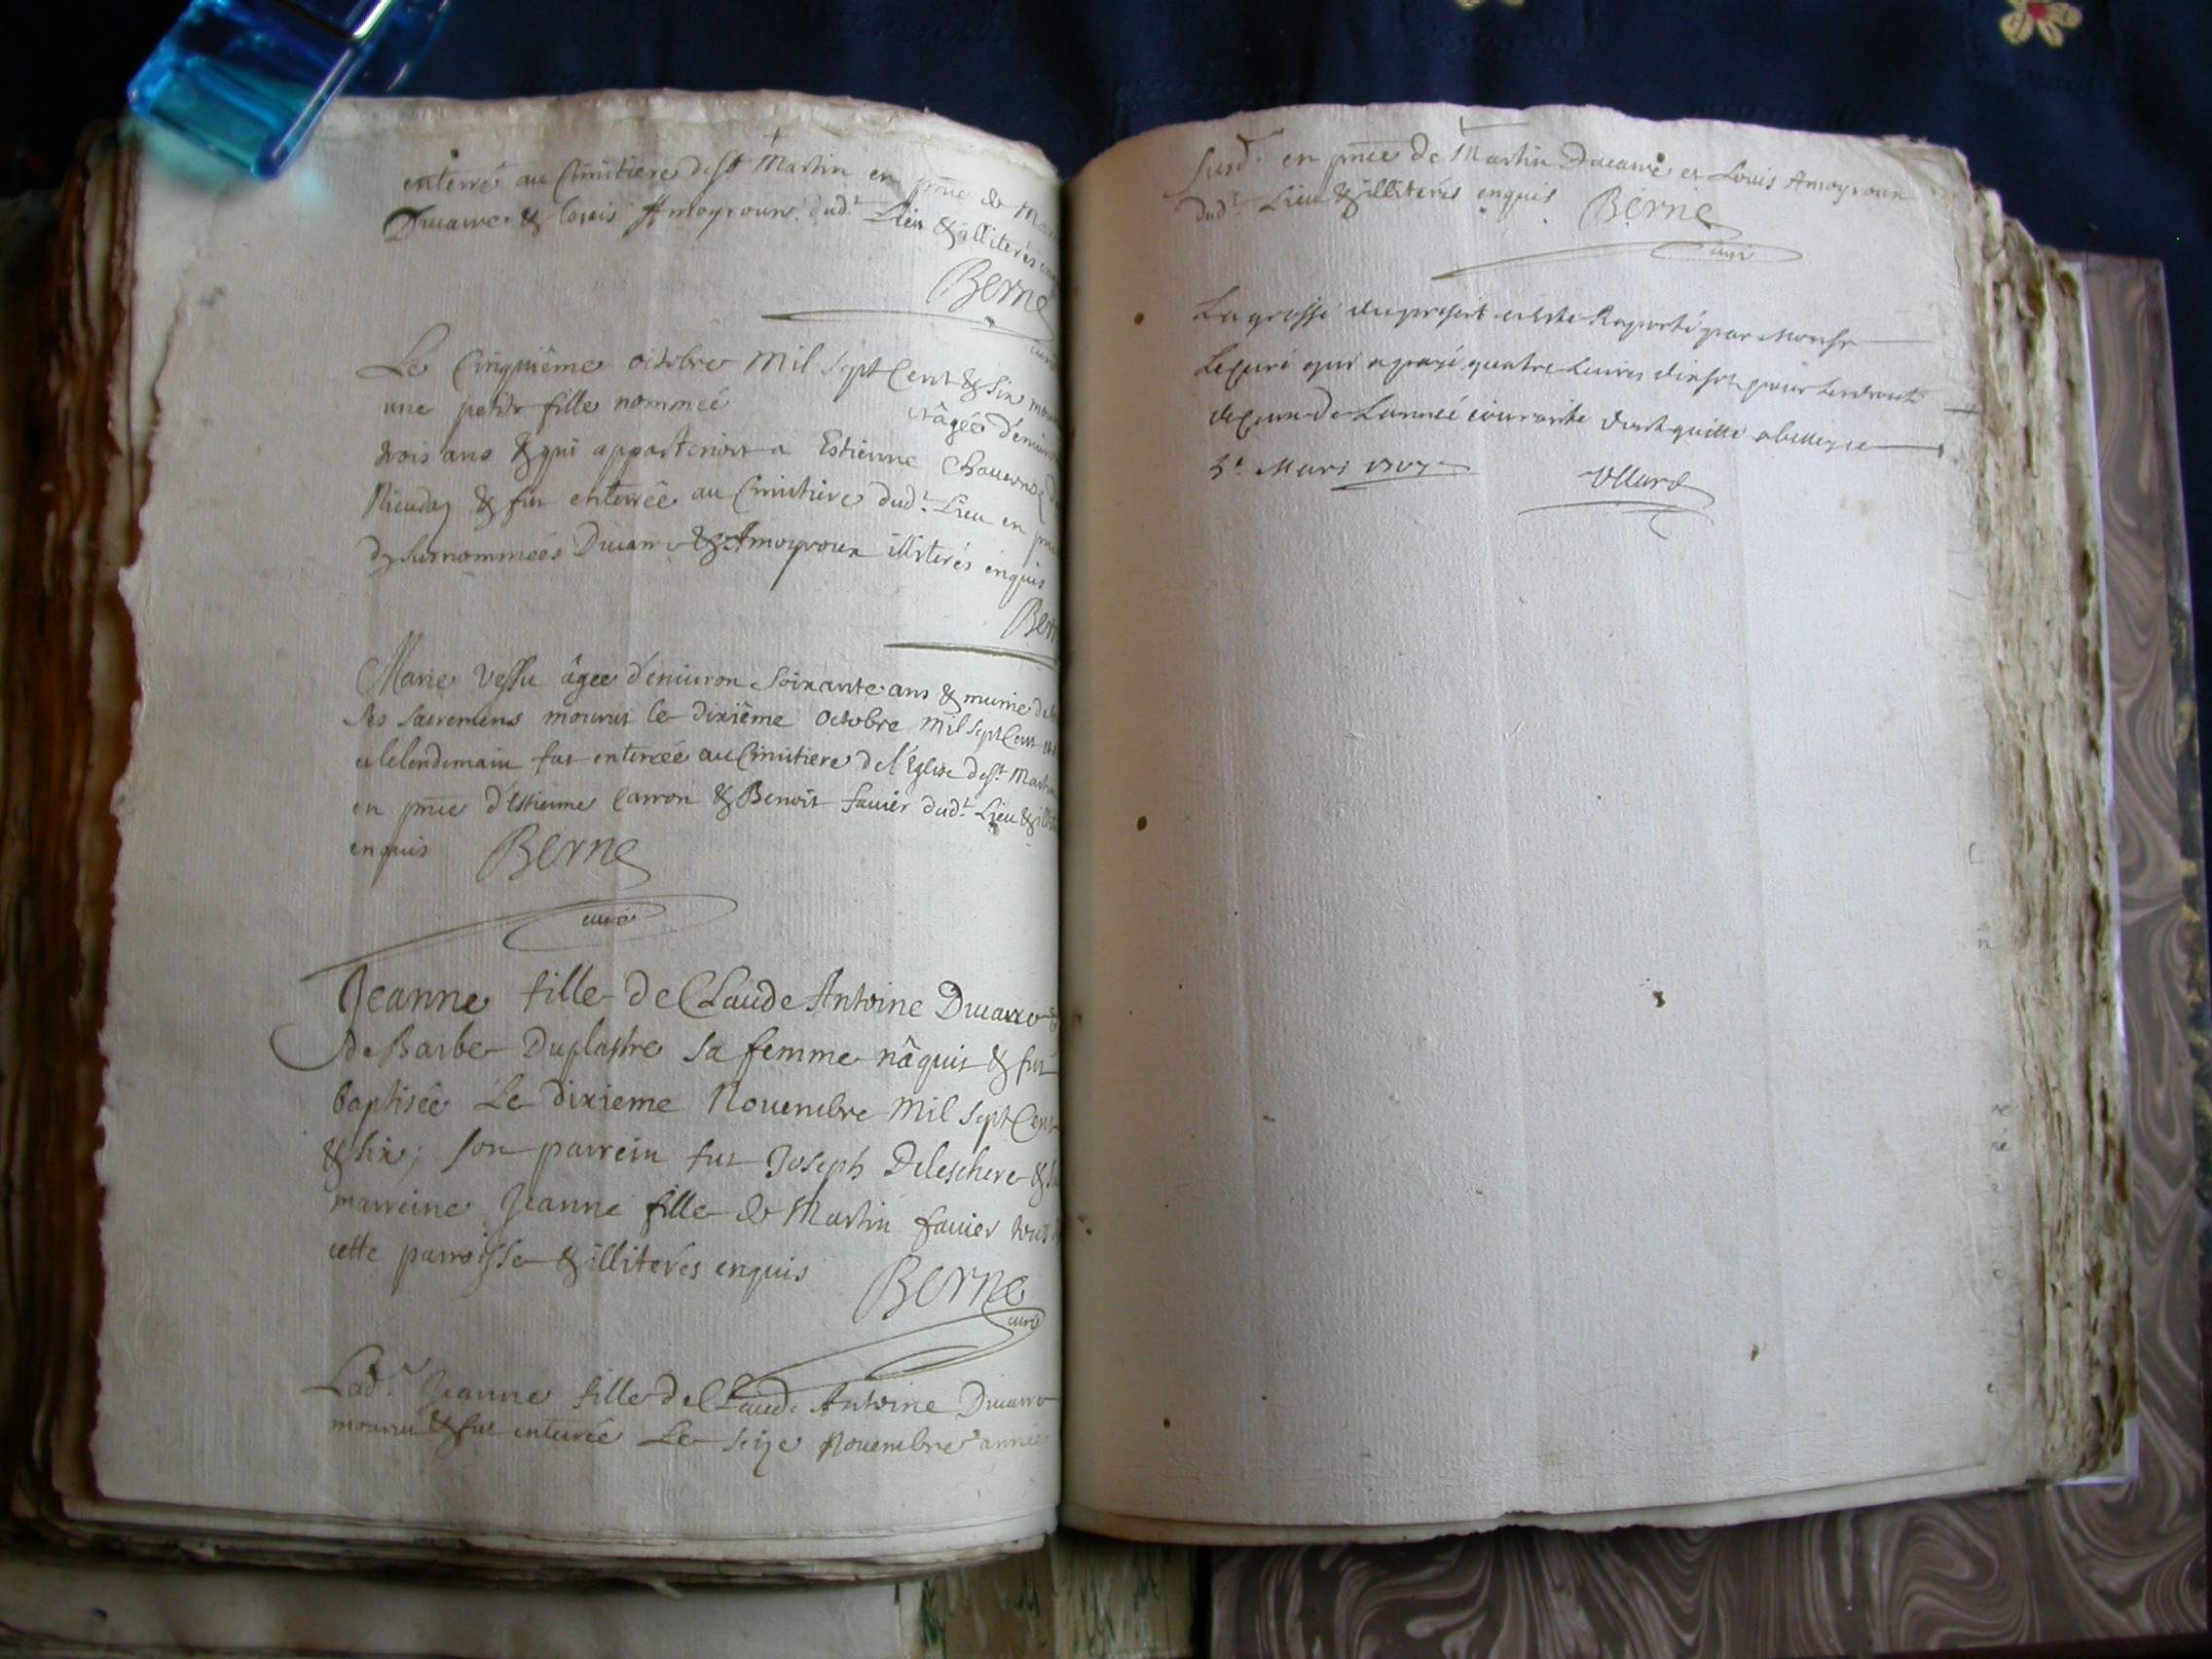 enterré au Cimitiere de st Martin en pnce de
Ducarre & louis Amoyroux dud.t Lieu & illiterés
Berne
curé
Le Cinquiême octobre Mil sept Cent & six
une petite fille nommeé âgeé d'enuiron
trois ans & qui appartenoit a Estienne
& fut enterrêe au Cimitiere dud.t Lieu en
Ducarre & Amoyroux illiterés enquis
Bern
Marie Vessu âgeé d'enuiron soixante ans & munie de
ses sacremens mourut le dixiême octobre mil sept Cent
et lelendemain fut enterreé au Cimitiere de l'Eglise de st. Martin
en pnce d'Estienne Carron & Benoit fauier dud.t Lieu &
enquis Berne
curé
Jeanne fille de Claude Antoine Ducarre
de Barbe Duplastre sa femme nâquit & fut
baptisêe Le dixieme Nouembre Mil sept Cent
& six; son parrein fut Joseph Deleschere &
marreine Jeanne fille de Martin fauier tous
cette parroisse & illiterés enquis Berne
curé
Lad.te Jeanne fille de Claude Antoine Ducarre
mourut & fut enterrée Le seize Nouembre année
susd.te en pnce de Martin Ducarre et Louis Amoyroux
dud.t Lieu & illiterés enquis Berne
curé
La grosse du present a este Raporté par Monsr
Le curé qui a payé quatre Liures dix sols pour
de Lanneé courante dont quitte a
Mars 1707